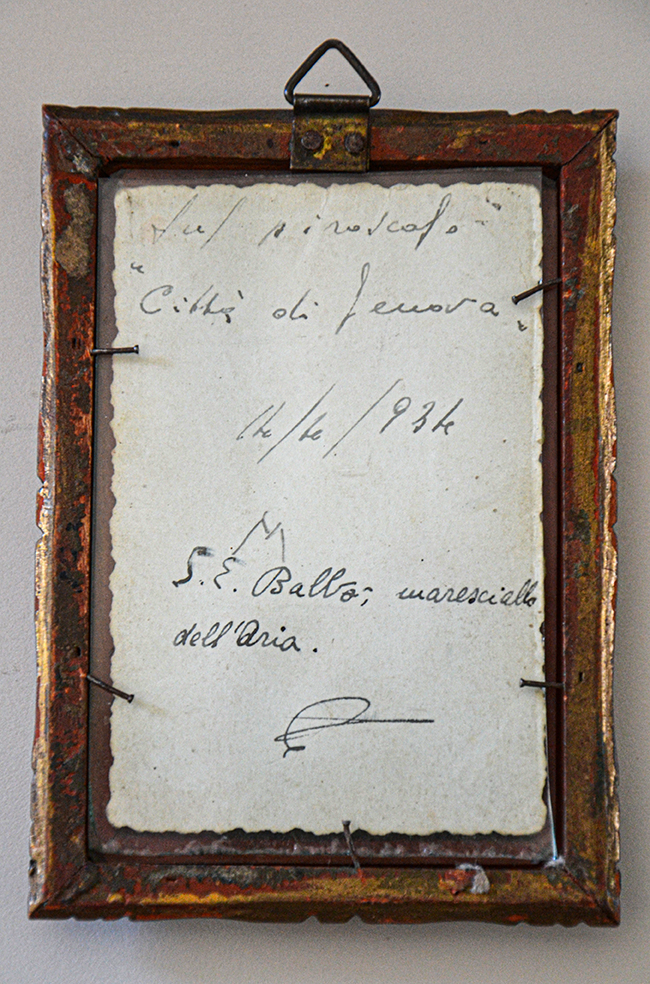 Sul piroscafo
"Città di Genova"
14/4/934
M
S. E. Balbo, maresciallo
dell'Aria.